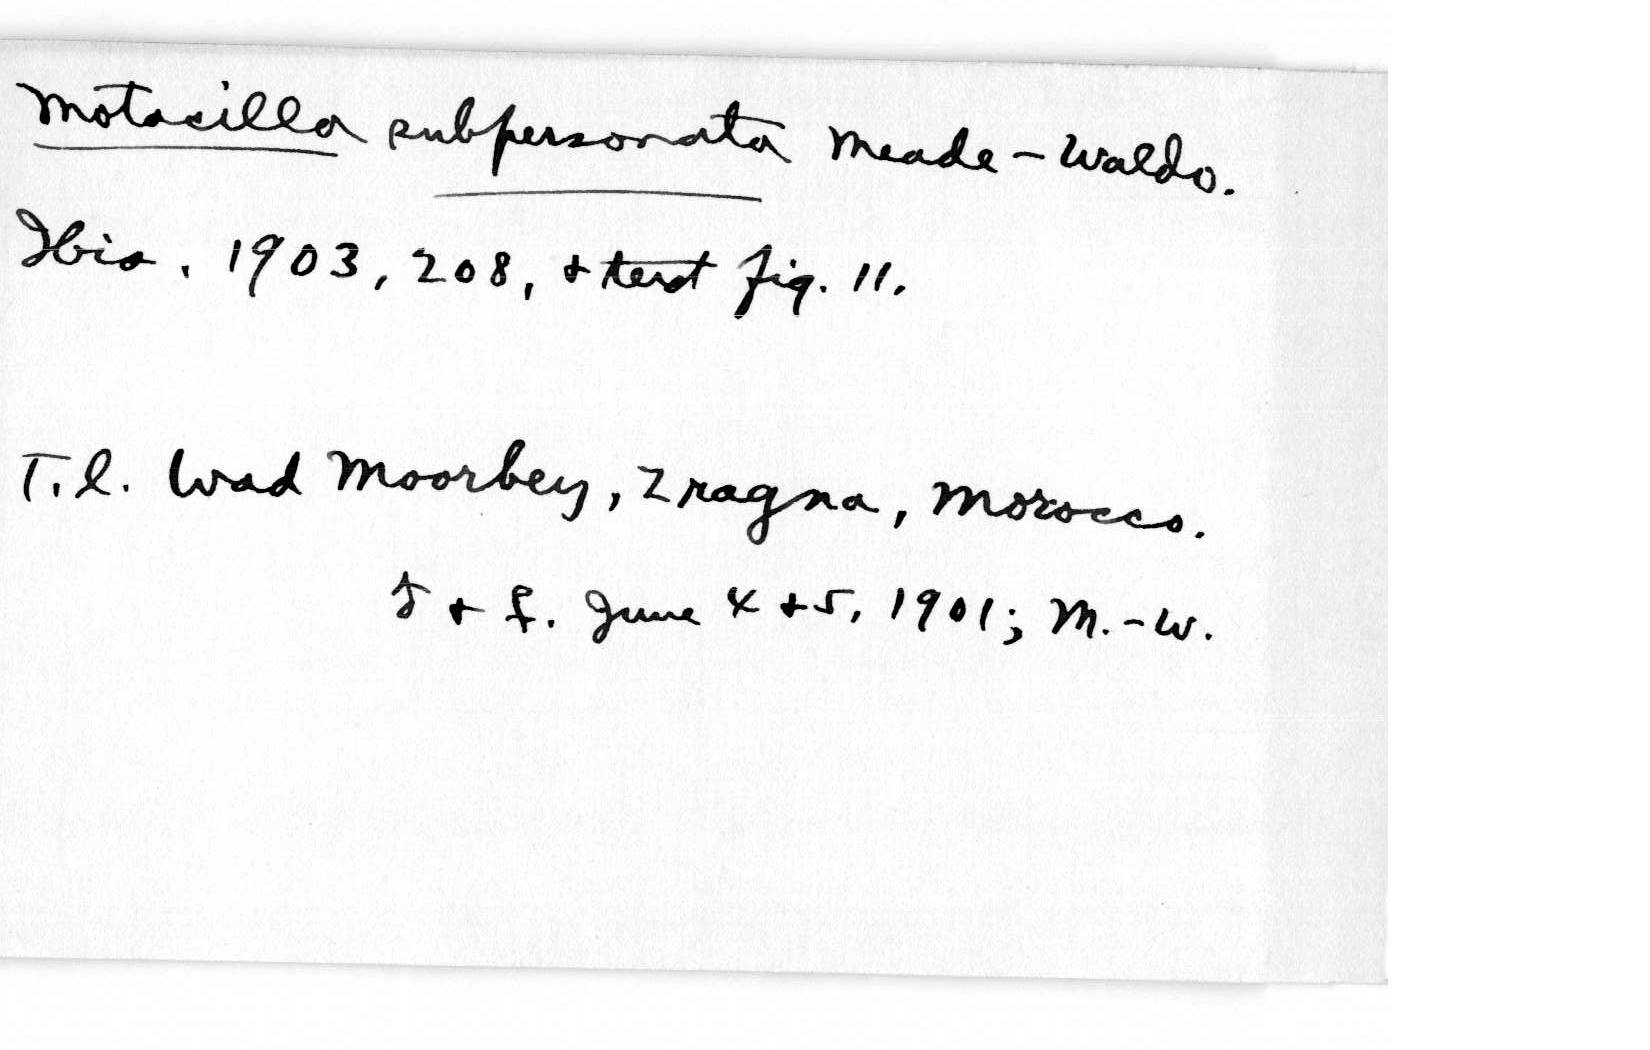 Motacilla subpersonata Meade-Waldo.
Ibis. 1903, 208, + text fig. 11.
T.l. Wad Moorbey, Zragna, Morocco.
♂ + ♀. June 4 + 5, 1901; M.-W.